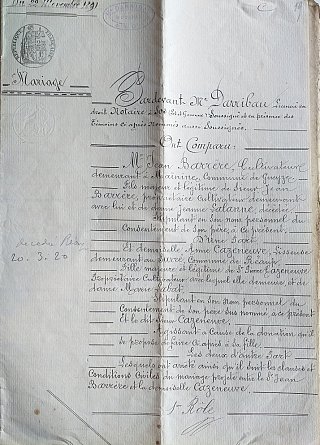 Mariage
Pardevant Me Darribau Licencié en
droit Notaire à Sos Soussigné et en présence des
témoins ci après nommés aussi Soussignés
Ont Comparu:
Mr Jean Barrère, Cultivateur
demeurant à Mainine, Commune de
Fils majeur et légitime de Sieur Jean
Barrère, propriétaire Cultivateur demeurant
avec lui et de dame Jeanne Lalanne, décédée
Stipulant en Son nom personnel du
Consentement de Son père à ce présent
D'une part
Et demoiselle Anna Cazeneuve, Lisseuse
demeurant au Commune de Réaup
Fille majeure et légitime de Sr Cazeneuve
Propriétaire Cultivateur avec lequel elle demeure, et de
dame Marie Labat
Stipulant en Son nom personnel du
Consentement de Son père Sus nommé à ce présent
Et le dit Sieur Cazeneuve,
Agissant à Cause de la donation qu'il
se propose de faire ci après à Sa fille
Les deux d'autre part
Lesquels ont arrêté ainsi qu'il Suit les clauses et
Conditions Civiles du mariage projeté entre le Sr Jean
Barrère et la demoiselle Cazeneuve.
20-3-20
1er Rôle